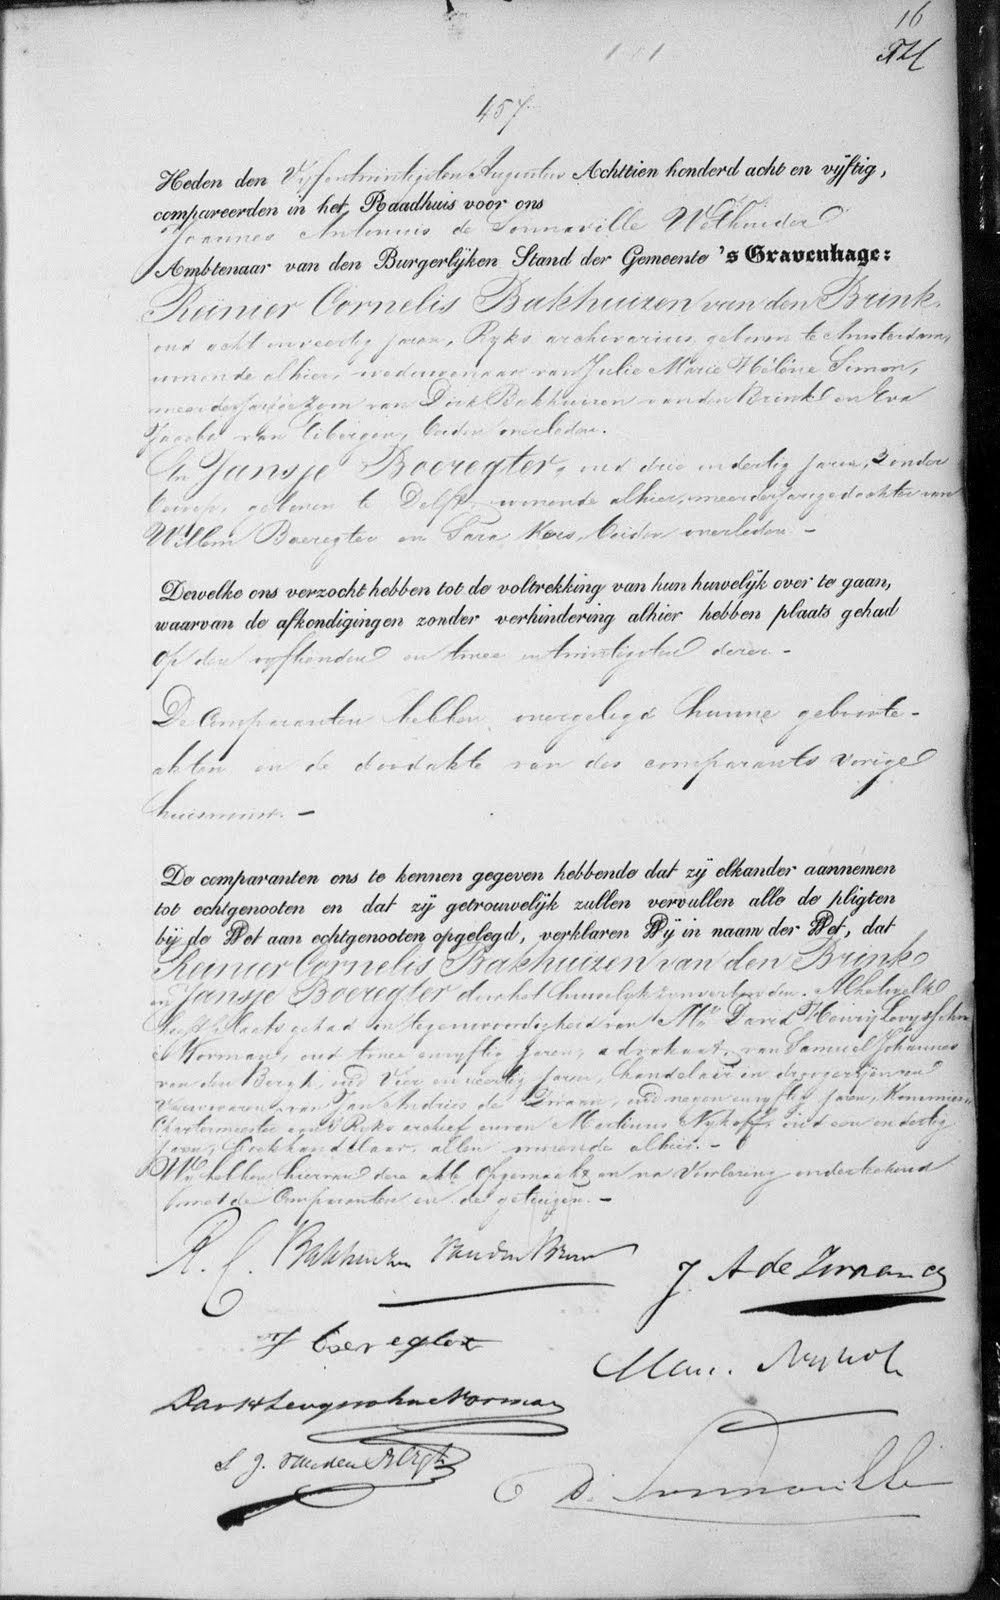 16
457
Heden den Vyfentwintigsten Augustus Achttien honderd acht en vijftig,
compareerden in het Raadhuis voor ons
Joannes Antonius de Sonnaville Wethouder
Ambtenaar van den Burgerlijken Stand der Gemeente 's Gravenhage:
Reinier Cornelis Bakhuizen van den Brink,
oud acht en veertig jaren, Ryks archivarius, geboren te Amsterdam,
wonende alhier, weduwenaar van Julie Marie Hélène Simon,
meerderjarige zoon van Dirk Bakhuizen van den Brink en Eva
Jacoba van Eibergen, beiden overleden.
En Jansje Boeregter, oud drie en dertig jaren, zonder
beroep, geboren te Delft, wonende alhier, meerderjarige dochter van
Willem Boeregter en Sara Kers, beiden overleden. -
Dewelke ons verzocht hebben tot de voltrekking van hun huwelijk over te gaan,
waarvan de afkondigingen zonder verhindering alhier hebben plaats gehad
op den vyftienden en twee en twintigsten dezer. -
De Comparanten hebben overgelegd hunne geboorte-
akten en de doodakte van des comparants vorige
huisvrouw. -
De comparanten ons te kennen gegeven hebbende dat zij elkander aannemen
tot echtgenooten en dat zij getrouwelijk zullen vervullen alle de pligten
bij de Wet aan echtgenooten opgelegd, verklaren Wij in naam der Wet, dat
Reinier Cornelis Bakhuizen van den Brink
en Jansje Boeregter door het huwelyk zyn verbonden. Al hetwelk
heeft plaats gehad in tegenwoordigheid van Mr. David Henry Levyssohn
Norman, oud twee en vyftig jaren, advokaat, van Samuel Johannes
van den Bergh, oud vier en veertig jaren, handelaar in drogeryen en
verfwaren, van Jan Andries de Zwaan, oud negen en vyftig jaren, Kommies
Chartermeester aan 's Ryks archief en van Martinus Nyhoff, oud een en dertig
jaren, boekhandelaar, allen wonende alhier. -
Wy hebben hiervan deze akte opgemaakt en na voorlezing onderteekend
met de Comparanten en de getuigen. -
R. C. Bakhuizen van den Brink
J. A de Zwaan
J Boeregter
Mart. Nyhoff
Dav H Levyssohn Norman
S. J. van den Bergh
D. Sonnaville